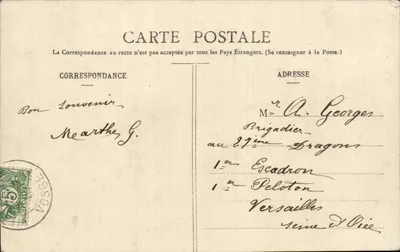 CARTE POSTALE
La Correspondance au recto n'est pas acceptée par tous les Pays Étrangers. (Se renseigner à la Poste.)
CORRESPONDANCE
Bon Souvenir
Marthe G.
5
ADRESSE
Mr A. Georges
Brigadier
au 27ème Dragons
1er Escadron
1er Peloton
Versailles
Seine & Oise